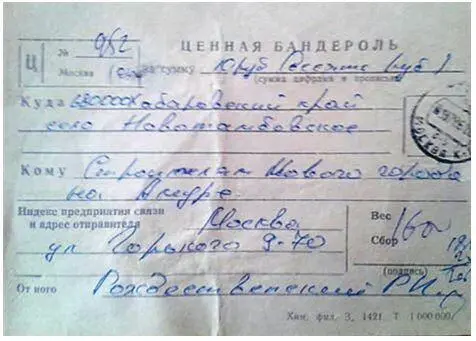 ЦЕННАЯ БАНДЕРОЛЬ
№ 982
Ц
Москва
за сумму 10 руб Десять руб
(сумма цифрами и прописью)
Куда 680000 Хабаровский край
село Новотамбовское
Кому Строителям Нового города
на Амуре.
Индекс предприятия связи
и адрес отправителя
Москва
ул Горького 9-70
Вес 160
Сбор
(подпись)
От кого Рождественский Р И
МОСКВА
Хин. фил. З. 1421 Т 1 000 000